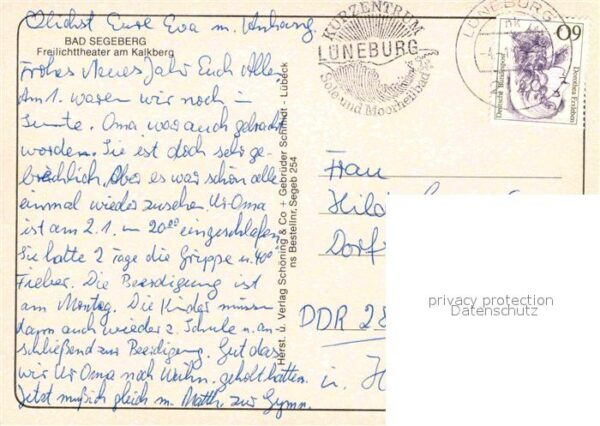 Küßchst Eure Eva m. Anhang.
BAD SEGEBERG
Freilichttheater am Kalkberg
Frohes Neues Jahr Euch Allen
Am 1. waren wir noch in
Oma war auch gebracht
worden. Sie ist doch sehr ge-
brechlich. Aber es war schön alle
einmal wieder zusehen. Ur Oma
ist am 2.1. um 20⁰⁰ eingeschlafen,
Sie hatte 2 Tage die Grippe u. 40°
Fieber. Die Beerdigung ist
am Montag. Die Kinder müssen
dann auch wieder z. Schule u. an-
schließend zur Beerdigung. Gut das
wir Ur Oma noch Weihn. geholt hatten.
Jetzt muß ich gleich m. Matth. zur Gymn.
Herst. u. Verlag Schöning & Co + Gebrüder Schmidt - Lübeck
ns Bestellnr. Segeb 254
KURZENTRUM
LÜNEBURG
Sole- und Moorheilbad
LÜNEBURG
60
Deutsche Bundespost
Dorothea Erxleben
Frau
Dorf
DDR 28
privacy protection
Datenschutz